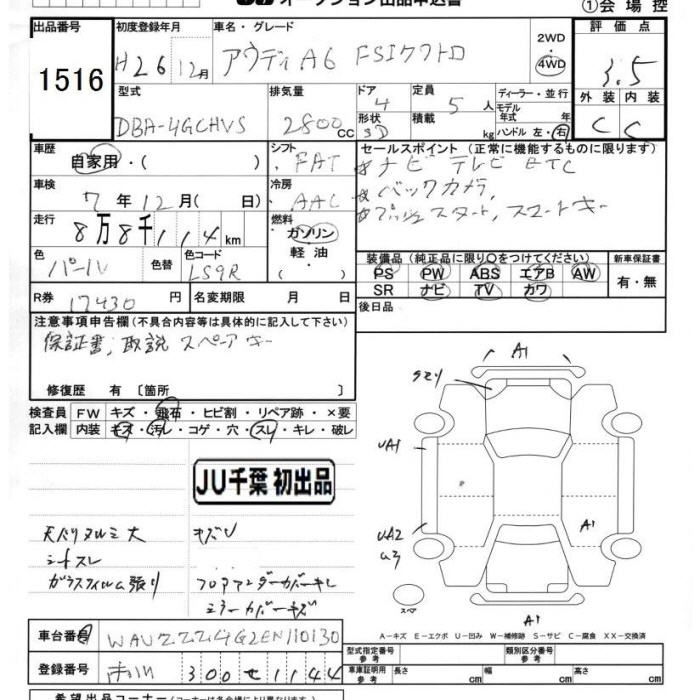 オークション出品申込書
①会場控
出品番号 初度登録年月 車名・グレード 2WD 評価点
1516 H26 12月 アウディA6 FSIクワトロ 4WD 3.5
型式 排気量 ドア 定員 ディーラー・並行 外装 内装
DBA-4GCHVS 2800cc 4 5人 モデル年式 年 C C
形状 積載 3D kg ハンドル 左・右
車歴 シフト セールスポイント(正常に機能するものに限ります)
自家用・( ) FAT ナビ テレビ ETC
車検 冷房 バックカメラ,
7年12月( 日) AAC プッシュスタート, スマートキー
走行 燃料
8万8千114km ガソリン 軽油
装備品(純正品に限り○をつけてください) 新車保証書
色 色替 色コード PS PW ABS エアB AW 有・無
パール LS9R SR ナビ TV カワ
R券 17430円 名変期限 月 日 後日品
注意事項申告欄(不具合内容等は具体的に記入して下さい)
保証書, 取説 スペアキー
A1
修復歴 有〔箇所 〕
検査員 FW キズ・飛石・ヒビ割・リペア跡・×要
記入欄 内装 キズ・汚レ・コゲ・穴・スレ・キレ・破レ
UA1
JU千葉 初出品
天バリヌルミ大 キズU
シートスレ
ガラスフィルム張り フロアアンダーカバーキレ
ミラーカバーキズ
UA2
A1
スペア
A1
A-キズ E-エクボ U-凹み W-補修跡 S-サビ C-腐食 XX-交換済
車台番号 WAUZZZ4G2EN110130
型式指定番号 参考 類別区分番号 参考
登録番号 300せ1144
車庫証明用 参考 長さ cm 幅 cm 高さ cm
希望出品コーナー(コーナーは各会場により異なります)